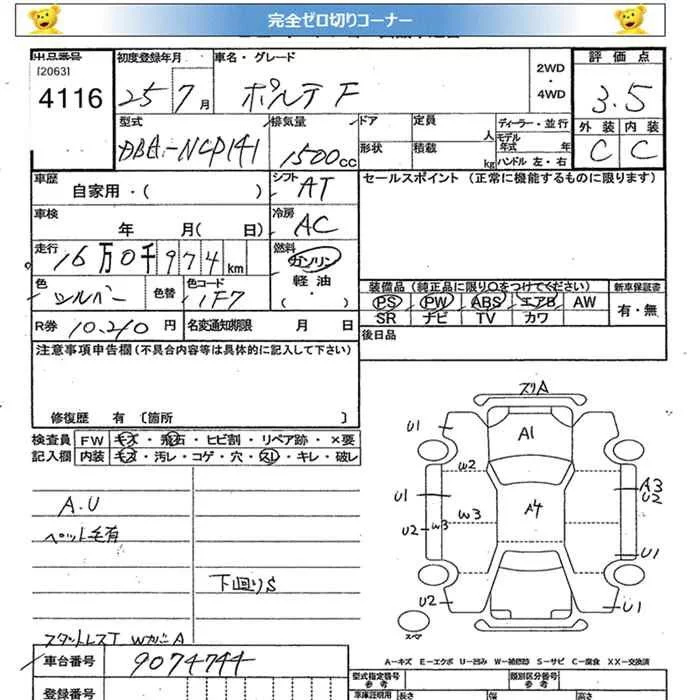 完全ゼロ切りコーナー
出品番号
[2063]
4116
初度登録年月
25年7月
車名・グレード
ポルテ F
2WD
・
4WD
評価点
3.5
外装 内装
C C
型式
DBA-NCP141
排気量
1500cc
ドア
定員
人
形状
積載
kg
ディーラー・並行
モデル年式 年
ハンドル 左・右
車歴
自家用・( )
シフト
AT
セールスポイント(正常に機能するものに限ります)
車検
年 月( 日)
冷房
AC
走行
16万0千974km
燃料
ガソリン
軽油
( ・ )
色
シルバー
色替
色コード
1F7
装備品(純正品に限り〇をつけてください)
新車保証書
PS PW ABS エアB AW
SR ナビ TV カワ
有・無
R券 10,210円
名変通知期限 月 日
後日品
注意事項申告欄(不具合内容等は具体的に記入して下さい)
修復歴 有〔箇所 〕
検査員記入欄
FW キズ・飛石・ヒビ割・リペア跡・×要
内装 キズ・汚レ・コゲ・穴・スレ・キレ・破レ
A.U
ペット毛有
下回りS
スタットレスT WカバーA
スリA
U1
A1
W2
U1
A3
U2
A4
W3
U2
W3
U1
U2
U1
スペア
A-キズ E-エクボ U-凹み W-補修跡 S-サビ C-腐食 XX-交換済
車台番号
9074744
登録番号
型式指定番号
参考
類別区分番号
参考
車庫証明用
参考
長さ
幅
高さ